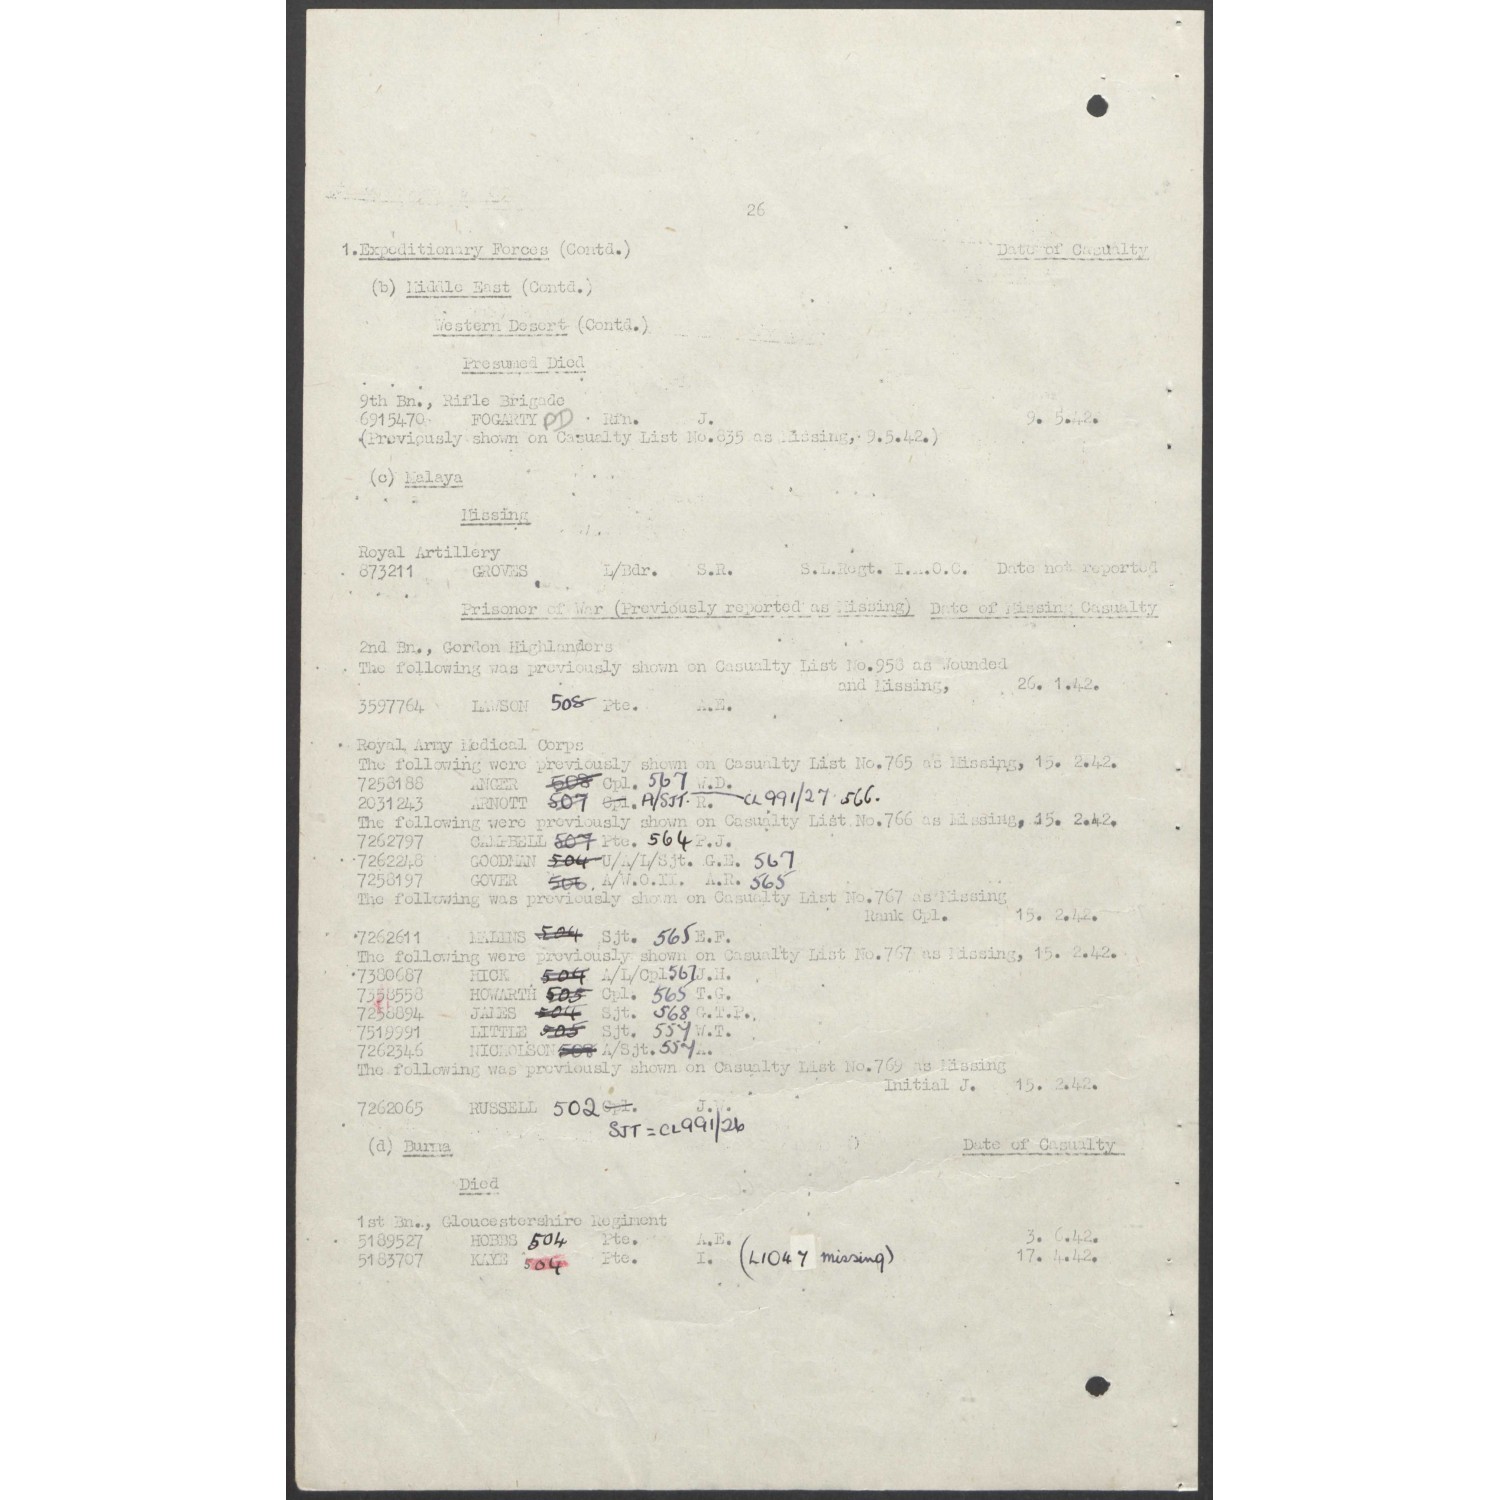 26
1. Expeditionary Forces (Contd.) Date of Casualty
(b) Middle East (Contd.)
Western Desert (Contd.)
Presumed Died
9th Bn., Rifle Brigade
6915470 FOGARTY PD Rfn. J. 9. 5.42.
(Previously shown on Casualty List No.835 as Missing, 9.5.42.)
(c) Malaya
Missing
Royal Artillery
873211 GROVES L/Bdr. S.R. S.L.Regt. I.A.O.C. Date not reported
Prisoner of War (Previously reported as Missing) Date of Missing Casualty
2nd Bn., Gordon Highlanders
The following was previously shown on Casualty List No.958 as Wounded
and Missing, 26. 1.42.
3597764 LAWSON 508 Pte. A.E.
Royal Army Medical Corps
The following were previously shown on Casualty List No.765 as Missing, 15. 2.42.
7258188 ANGER 508 Cpl. 567 W.D.
2031243 ARNOTT 507 Cpl. A/SJT. R. CL 991/27 566.
The following were previously shown on Casualty List No.766 as Missing, 15. 2.42.
7262797 CAMPBELL 507 Pte. 564 P.J.
7262248 GOODMAN 504 U/A/L/Sjt. G.E. 567
7258197 GOVER 506 A/W.O.II. A.R. 565
The following was previously shown on Casualty List No.767 as Missing
Rank Cpl. 15. 2.42.
7262611 MALINS 504 Sjt. 565 E.F.
The following were previously shown on Casualty List No.767 as Missing, 15. 2.42.
7380687 HICK 504 A/L/Cpl 567 J.H.
7358558 HOWARTH 505 Cpl. 565 T.G.
7258894 JANES 504 Sjt. 568 G.T.P.
7519991 LITTLE 505 Sjt. 557 W.T.
7262346 NICHOLSON 508 A/Sjt. 557 A.
The following was previously shown on Casualty List No.769 as Missing
Initial J. 15. 2.42.
7262065 RUSSELL 502 Cpl. J.W.
SJT = CL991/26
(d) Burma Date of Casualty
Died
1st Bn., Gloucestershire Regiment
5189527 HOBBS 504 Pte. A.E. 3. 6.42.
5183707 KAYE 504 Pte. I. (L1047 missing) 17. 4.42.